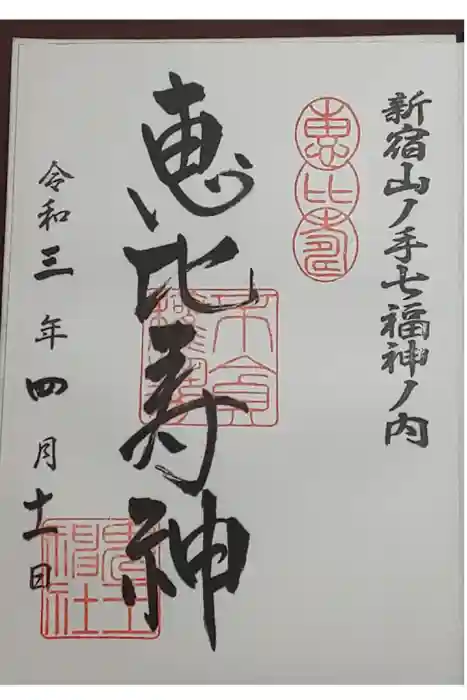 新宿山ノ手七福神ノ内
恵比寿
恵比寿神
令和三年四月十一日